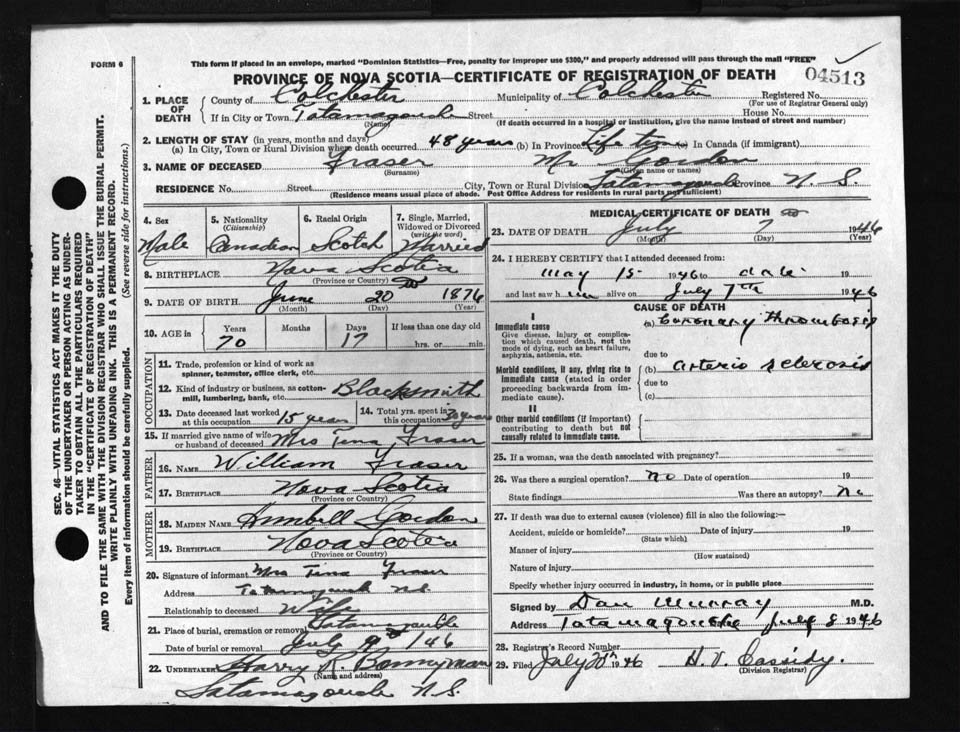 This form if placed in an envelope, marked "Dominion Statistics—Free, penalty for improper use $300," and properly addressed will pass through the mail "FREE"
FORM 6
PROVINCE OF NOVA SCOTIA—CERTIFICATE OF REGISTRATION OF DEATH
04513
1. PLACE OF DEATH
County of Colchester Municipality of Colchester Registered No.
(For use of Registrar General only)
If in City or Town Tatamagouche Street House No.
(Name) (If death occurred in a hospital or institution, give the name instead of street and number)
2. LENGTH OF STAY (in years, months and days)
(a) In City, Town or Rural Division where death occurred 48 years (b) In Province Life time (c) In Canada (if immigrant)
3. NAME OF DECEASED Fraser Mr Gordon
(Surname) (Given name or names)
RESIDENCE No. Street City, Town or Rural Division Tatamagouche Province N. S.
(Residence means usual place of abode. Post Office Address for residents in rural parts not sufficient)
4. Sex Male
5. Nationality (Citizenship) Canadian
6. Racial Origin Scotch
7. Single, Married, Widowed or Divorced (write the word) Married
8. BIRTHPLACE Nova Scotia
(Province or Country)
9. DATE OF BIRTH June 20 1876
(Month) (Day) (Year)
10. AGE in Years Months Days If less than one day old
70 17 hrs. or min.
OCCUPATION
11. Trade, profession or kind of work as spinner, teamster, office clerk, etc.
12. Kind of industry or business, as cotton-mill, lumbering, bank, etc. Blacksmith
13. Date deceased last worked at this occupation 15 years
14. Total yrs. spent in this occupation 30 years
15. If married give name of wife or husband of deceased Mrs Tena Fraser
FATHER
16. NAME William Fraser
17. BIRTHPLACE Nova Scotia
(Province or Country)
MOTHER
18. MAIDEN NAME Annbell Gordon
19. BIRTHPLACE Nova Scotia
(Province or Country)
20. Signature of informant Mrs Tina Fraser
Address N.S.
Relationship to deceased Wife
21. Place of burial, cremation or removal Tatamagouche
Date of burial or removal July 9th /46
22. UNDERTAKER Harry A. Bonnyman
(Name and address)
Tatamagouche N.S.
MEDICAL CERTIFICATE OF DEATH
23. DATE OF DEATH July 7 1946
(Month) (Day) (Year)
24. I HEREBY CERTIFY that I attended deceased from:
May 15 1946 to date 19
and last saw him alive on July 7th 1946
CAUSE OF DEATH
I
Immediate cause (a) Coronary thrombosis
Give disease, injury or complication which caused death, not the mode of dying, such as heart failure, asphyxia, asthenia, etc.
due to
Morbid conditions, if any, giving rise to immediate cause (stated in order proceeding backwards from immediate cause).
(b) arterio sclerosis
due to
(c)
II
Other morbid conditions (if important) contributing to death but not causally related to immediate cause.
25. If a woman, was the death associated with pregnancy?
26. Was there a surgical operation? No Date of operation 19
State findings Was there an autopsy? No
27. If death was due to external causes (violence) fill in also the following:—
Accident, suicide or homicide? Date of injury 19
(State which)
Manner of injury
(How sustained)
Nature of injury
Specify whether injury occurred in industry, in home, or in public place
Signed by Dan Murray M.D.
Address Tatamagouche July 8 1946
28. Registrar's Record Number
29. Filed July 20th 1946 H. V. Cassidy.
(Division Registrar)
SEC. 46—VITAL STATISTICS ACT MAKES IT THE DUTY
OF THE UNDERTAKER OR PERSON ACTING AS UNDER-
TAKER TO OBTAIN ALL THE PARTICULARS REQUIRED
IN THE "CERTIFICATE OF REGISTRATION OF DEATH"
AND TO FILE THE SAME WITH THE DIVISION REGISTRAR WHO SHALL ISSUE THE BURIAL PERMIT.
WRITE PLAINLY WITH UNFADING INK. THIS IS A PERMANENT RECORD.
Every item of information should be carefully supplied. (See reverse side for instructions.)